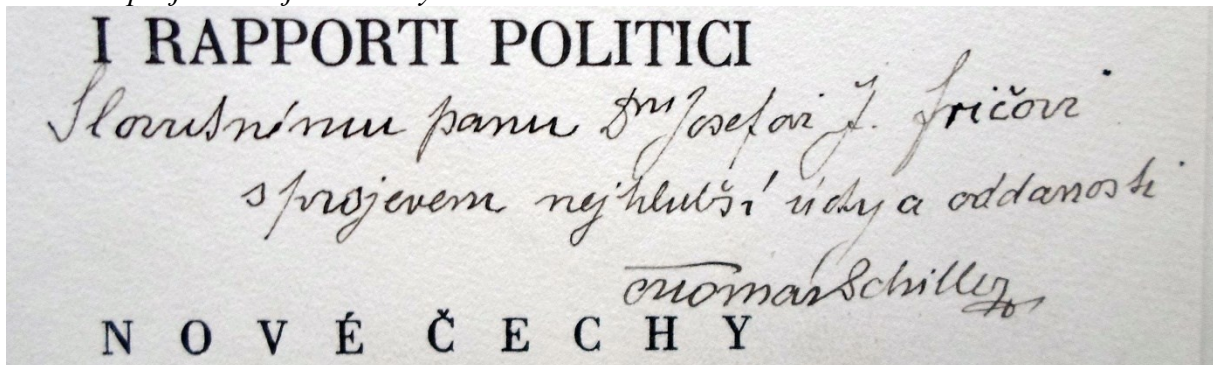 I RAPPORTI POLITICI
Slovutnému panu Dru Josefovi J. Fričovi
s projevem nejhlubší úcty a oddanosti
Otomar Schiller
NOVÉ ČECHY